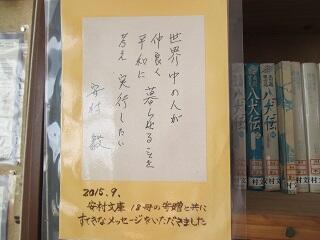 世界中の人が
仲良く
平和に 暮らせることを
考え 実行したい
安村 毅
2015.9.
安村文庫 18冊の寄贈と共に
すてきなメッセージをいただきました
八犬伝
八犬伝